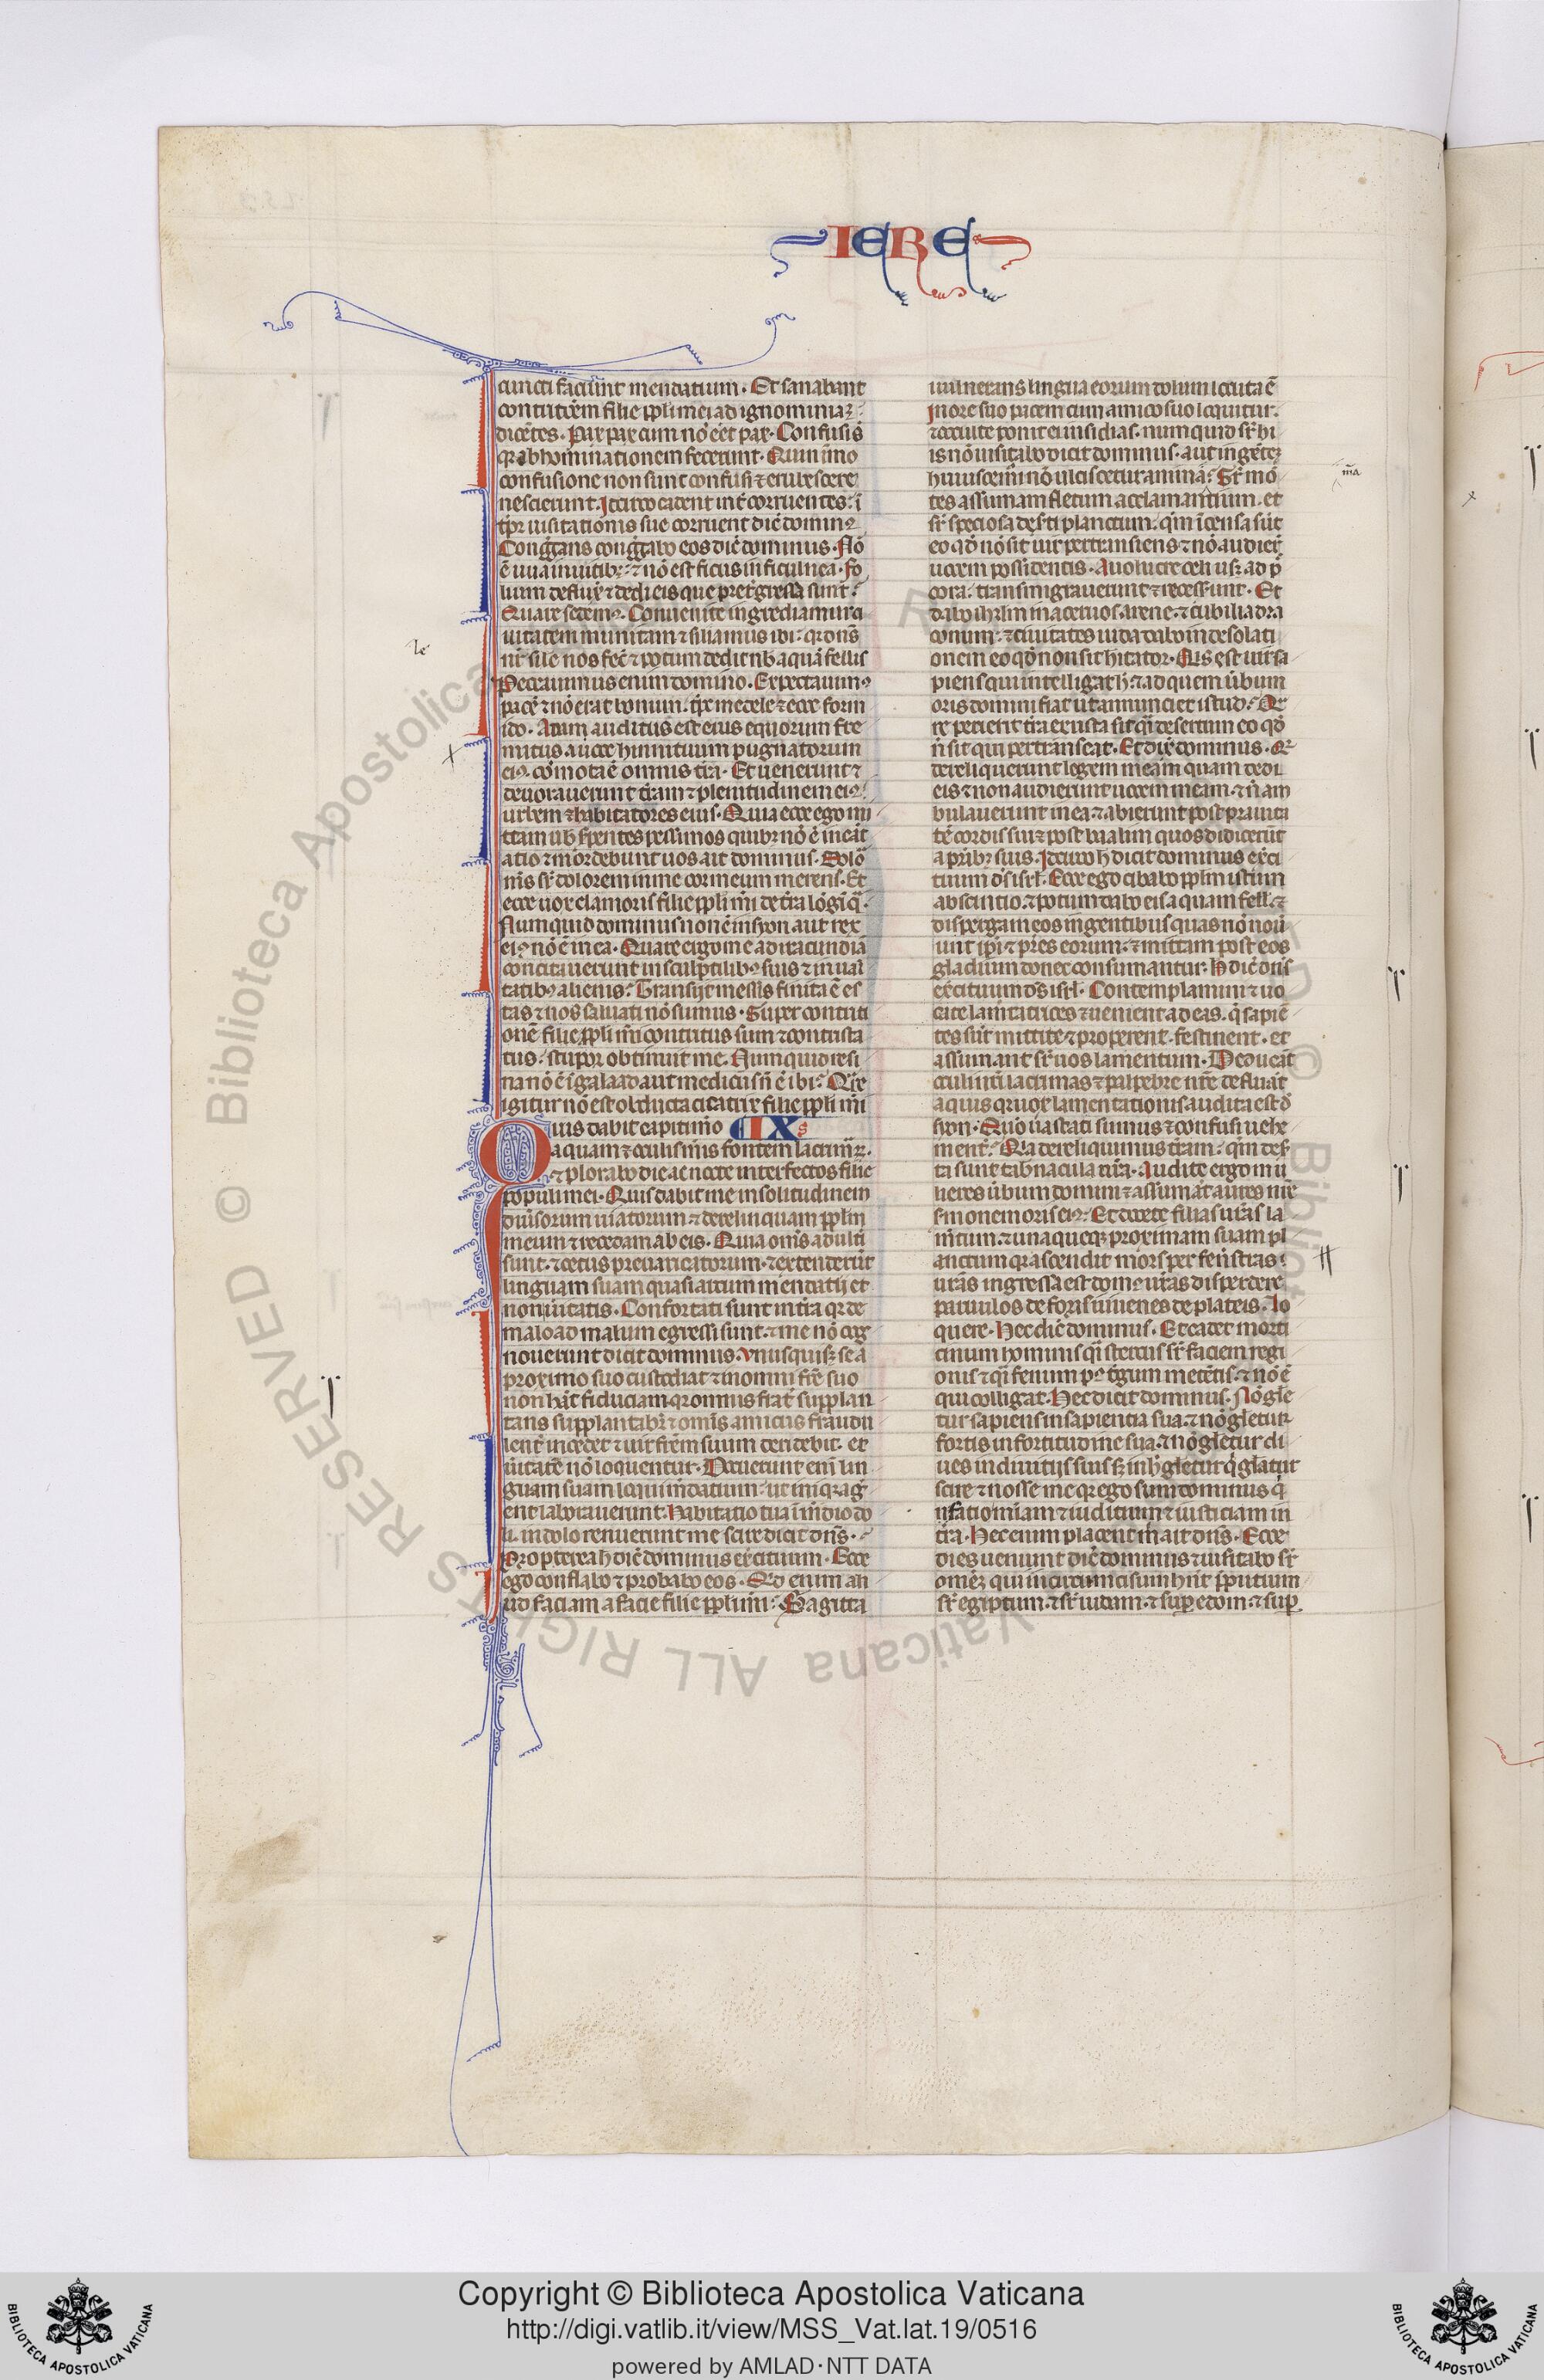 IERE
cuncti faciunt mendatium. Et sanabant
contritōem filie ppli mei ad ignominiaꝫ:
dicētes. Pax pax cum nō eēt pax. Confusi sūt
qꝛ abhominationem fecerunt. Quin īmo
confusione non sunt confusi ⁊ erubescere
nescierunt. Idcirco cadent int̄ corruentes: ī
tp̄r uisitationis sue corruent dic̄ dominꝰ
Cong̅gans cong̅gabo eos dic̄ dominus. Nō
ē uua in uitibꝫ: ⁊ nō est ficus in ficulnea. fo
lium defluxͭ ⁊ dedi eis que pretergressa sunt:
Quare sedemꝰ. Conuenite ingrediamur ci
uitatem munitam ⁊ sileamus ibi: qꝛ dn̄s
nr̄ sile nos fec̄ ⁊ potum dedit nb̄ aquā fellis
Peccauimus enim domino. Expectauimꝰ
pacē ⁊ nō erat bonum. tp̄r medele ⁊ ecce form
ido. A dan auditus est eius equorum fre
mitus a uoce hinnituum pugnatorum
eiꝰ. cōmota ē omnis tr̄a. Et uenerunt ⁊
deuorauerunt tr̄am ⁊ plenitudinem eiꝰ:
urbem ⁊ habitatores eius. Quia ecce ego mi
ttam uob̄ s̄pentes pessimos quibꝫ nō ē incāt
atio ⁊ mordebunt uos ait dominus. Dolor
mīs sr̄ dolorem in me cor meum merens. Et
ecce uox clamoris filie ppli mi de tr̄a lōgīqᷓ.
Numquid dominus non ē in syon aut rex
eiꝰ nō ē in ea. Quare ergo me ad iracundiā
concitauerunt in sculptilibꝰ suis ⁊ in uani
tatibꝰ alienis: Transijt messis finita ē es
tas ⁊ nos saluati nō sumus. Super contriti
onē filie ppli mi contritus sum ⁊ contrista
tus: stupor obtinuit me. Numquid resi
na nō ē ī galaad aut medicus nō ē ibi: Qꝛe
igitur nō est obducta cicatrix filie ppli mi
Quis dabit capiti mō IX
aquam ⁊ oculis mis fontem lacrimaꝝ.
⁊ plorabo die ac nocte interfectos filie
populi mei. Quis dabit me in solitudinem
diuisorum uiatorum ⁊ derelinquam pplm
meum ⁊ recedam ab eis. Quia omīs adulti
sunt. ⁊ cetus preuaricatorum. ⁊ extenderūt
linguam suam quasi arcum mendatij et
non uitatis. Confortati sunt in tr̄a qꝛ de
malo ad malum egressi sunt. ⁊ me nō cog
nouerunt dicit dominus. Vnusquisqꝫ se a
proximo suo custodiat ⁊ in omni fre suo
non hāt fiduciam. qꝛ omnis frāt supplan
tans supplantabit ⁊ omīs amicus fraudu
lent̄ incedet ⁊ uir frēm suum deridebit. et
uitatē nō loquentur. Docuerunt eni lin
guam suam loqui mdatium: ut iniqᷓ ag
erent laborauerunt. Habitatio tua ī mdio do
li. in dolo renuerunt me scire dicit dn̄s.
Propterea h̄ dic̄ dominus ex̄cituum. Ecce
ego conflabo ⁊ probabo eos. Qd̄ enim ali
ud faciam a facie filie ppli mi: Sagitta
uulnerans lingua eorum dolum locuta ē
In ore suo pacem cum amico suo loquitur.
⁊ occulte ponit ei insidias. numquid sr̄ hi
is nō uisitabo dicit dominus. aut in gētē
huiuscēmi nō ulciscetur anima: Sr̄ mō
ma
tes assumam fletum ac lamentum. et
sr̄ speciosa deserti planctum: qm̄ īcensa sūt
eo qd̄ nō sit uir pertransiens ⁊ nō audier̄
uocem possidentis. A uolucre celi usqꝫ ad p̄
cora: transmigrauerunt ⁊ recesserunt. Et
dabo ihrlm in aceruos arene. ⁊ cubilia dra
conum. ⁊ ciuitates iuda dabo in desolati
onem eo qd̄ non sit hitator. Qīs est uir sa
piens qui intelligat h̄. ⁊ ad quem ūbum
oris domini fiat ut annunciet istud:
re perierit tr̄a exusta sit qᷓi desertum eo qd̄
n̄ sit qui pertranseat. Et dix̄ dominus. Qꝛ
dereliquerunt legem meam quam dedi
eis ⁊ non audierunt uocem meam. ⁊ n̄ am
bulauerunt in ea. ⁊ abierunt post prauita
tē cordis sui ⁊ post baalim quos didicerūt
a prībꝫ suis. Idcirco h̄ dicit dominus ex̄ci
tuum ds̄ isrl. Ecce ego cibabo pplm istum
absintio. ⁊ potum dabo eis aquam fell̄. ⁊
dispergam eos in gentibus quas nō noū
unt ip̄i ⁊ pr̄es eorum. ⁊ mittam post eos
gladium donec consumantur. H̄ dic̄ dn̄s
ex̄cituum ds̄ isrl. Contemplamini ⁊ uo
cate lamentatrices ⁊ uenient. ad eas q̄ sapiē
tes sūt mittite ⁊ properent. festinent. et
assumant sr̄ nos lamentum. Deducāt
oculi nr̄i lacrimas ⁊ palpebre nr̄e defluāt
aquis. qꝛ uox lamentationis audita est d̄
syon. Quō uastati sumus ⁊ confusi uehe
ment̄. Qꝛ a dereliquimus tr̄am: qm̄ deiec
ta sunt tab̄nacula nr̄a. Audite ergo mu
lieres ūbum domini ⁊ assumāt aures ure
s̄monem oris eiꝰ: Et docete filias ur̄as la
mentum. ⁊ unaqueqꝫ proximam suam pl
anctum. qꝛ ascendit mors per fenestras:
uras ingressa est domꝰ ur̄as disperdere
paruulos de foris iuuenes de plateis. Lo
quere. Hec dic̄ dominus. Et cadet morti
cinum hominis qᷓi stercus sr̄ faciem regi
onis ⁊ qᷓi fenum pꝰ tg̅um metētis. ⁊ nō ē
qui colligat. Hec dicit dominus. Nō gle
tur sapiens in sapientia sua. ⁊ nō gletur
fortis in fortitudine sua. ⁊ nō gletur di
ues in diuitijs suis. sꝫ in h̄ gletur q̄ glatur
scire ⁊ nosse me. qꝛ ego sum dominus q̄
facio miam ⁊ iuditium ⁊ iusticiam in
tr̄a. Hec enim placent m̄ ait dn̄s. Ecce
dies ueniunt dic̄ dominus ⁊ uisitabo sr̄
omēꝫ qui in circumcisum hn̄t p̄putium
sr̄ egiptum. ⁊ sr̄ iudam. ⁊ sup̄ edom. ⁊ sup̄
Copyright © Biblioteca Apostolica Vaticana
http://digi.vatlib.it/view/MSS_Vat.lat.19/0516
powered by AMLAD·NTT DATA
BIBLIOTECA APOSTOLICA VATICANA
BIBLIOTECA APOSTOLICA VATICANA
© Biblioteca Apostolica Vaticana ALL RIGHTS RESERVED